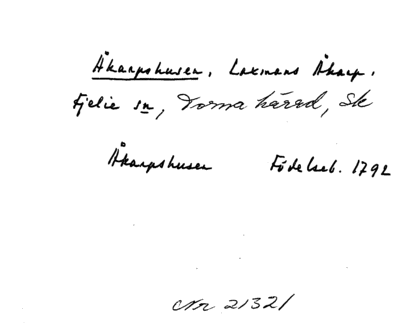 Åkarpshusen, Laxmans Åkarp.
Fjelie sn, Torna härad, Sk
Åkarpshusen Födelseb. 1792
Nr 21321